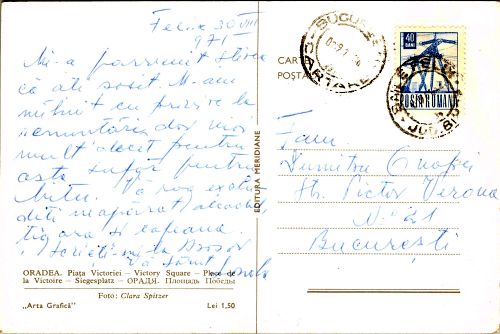 Felix 30 VIII
971
Mi-a parvenit știrea
că ați sosit. M-am
mîhnit cu privire la
mult decît pentru
asta sufăr pentru
Vă rog
diți neapărat alcoolul
țigara și cafeaua.
Scrieți-mi la
Vă sărut
ORADEA. Piața Victoriei – Victory Square – Place de
la Victoire – Siegesplatz – ОРАДЯ. Площадь Победы
Foto: Clara Spitzer
„Arta Grafică” Lei 1,50
EDITURA MERIDIANE
CARTE
POȘTALĂ
BUCUREȘTI
CARTARE
40
BANI
POSTA ROMANA
JUD. BIHOR
Fam.
Dumitru Onofrei
Str. Victor Verona
Nr. 21
București